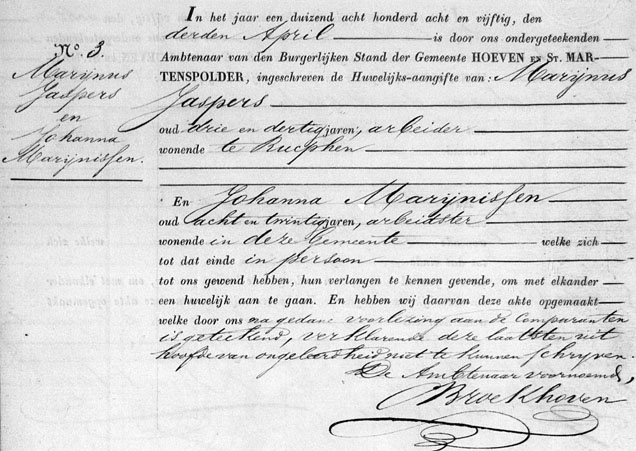 In het jaar een duizend acht honderd acht en vijftig, den
derden April is door ons ondergeteekenden
Ambtenaar van den Burgerlijken Stand der Gemeente HOEVEN EN ST. MAR-
TENSPOLDER, ingeschreven de Huwelijks-aangifte van: Marijnus
Jaspers
oud drie en dertig jaren, arbeider
wonende te Rucphen
En Johanna Marijnissen
oud acht en twintig jaren, arbeidster
wonende in deze Gemeente welke zich
tot dat einde in persoon
tot ons gewend hebben, hun verlangen te kennen gevende, om met elkander
een huwelijk aan te gaan. En hebben wij daarvan deze akte opgemaakt
welke door ons na gedane voorlezing aan de Comparanten
is geteekend, verklarende deze laatsten uit
hoofde van ongeleerdheid niet te kunnen schryven.
De Ambtenaar voornoemd,
Broekhoven
No. 3.
Marijnus
Jaspers
en
Johanna
Marijnissen.